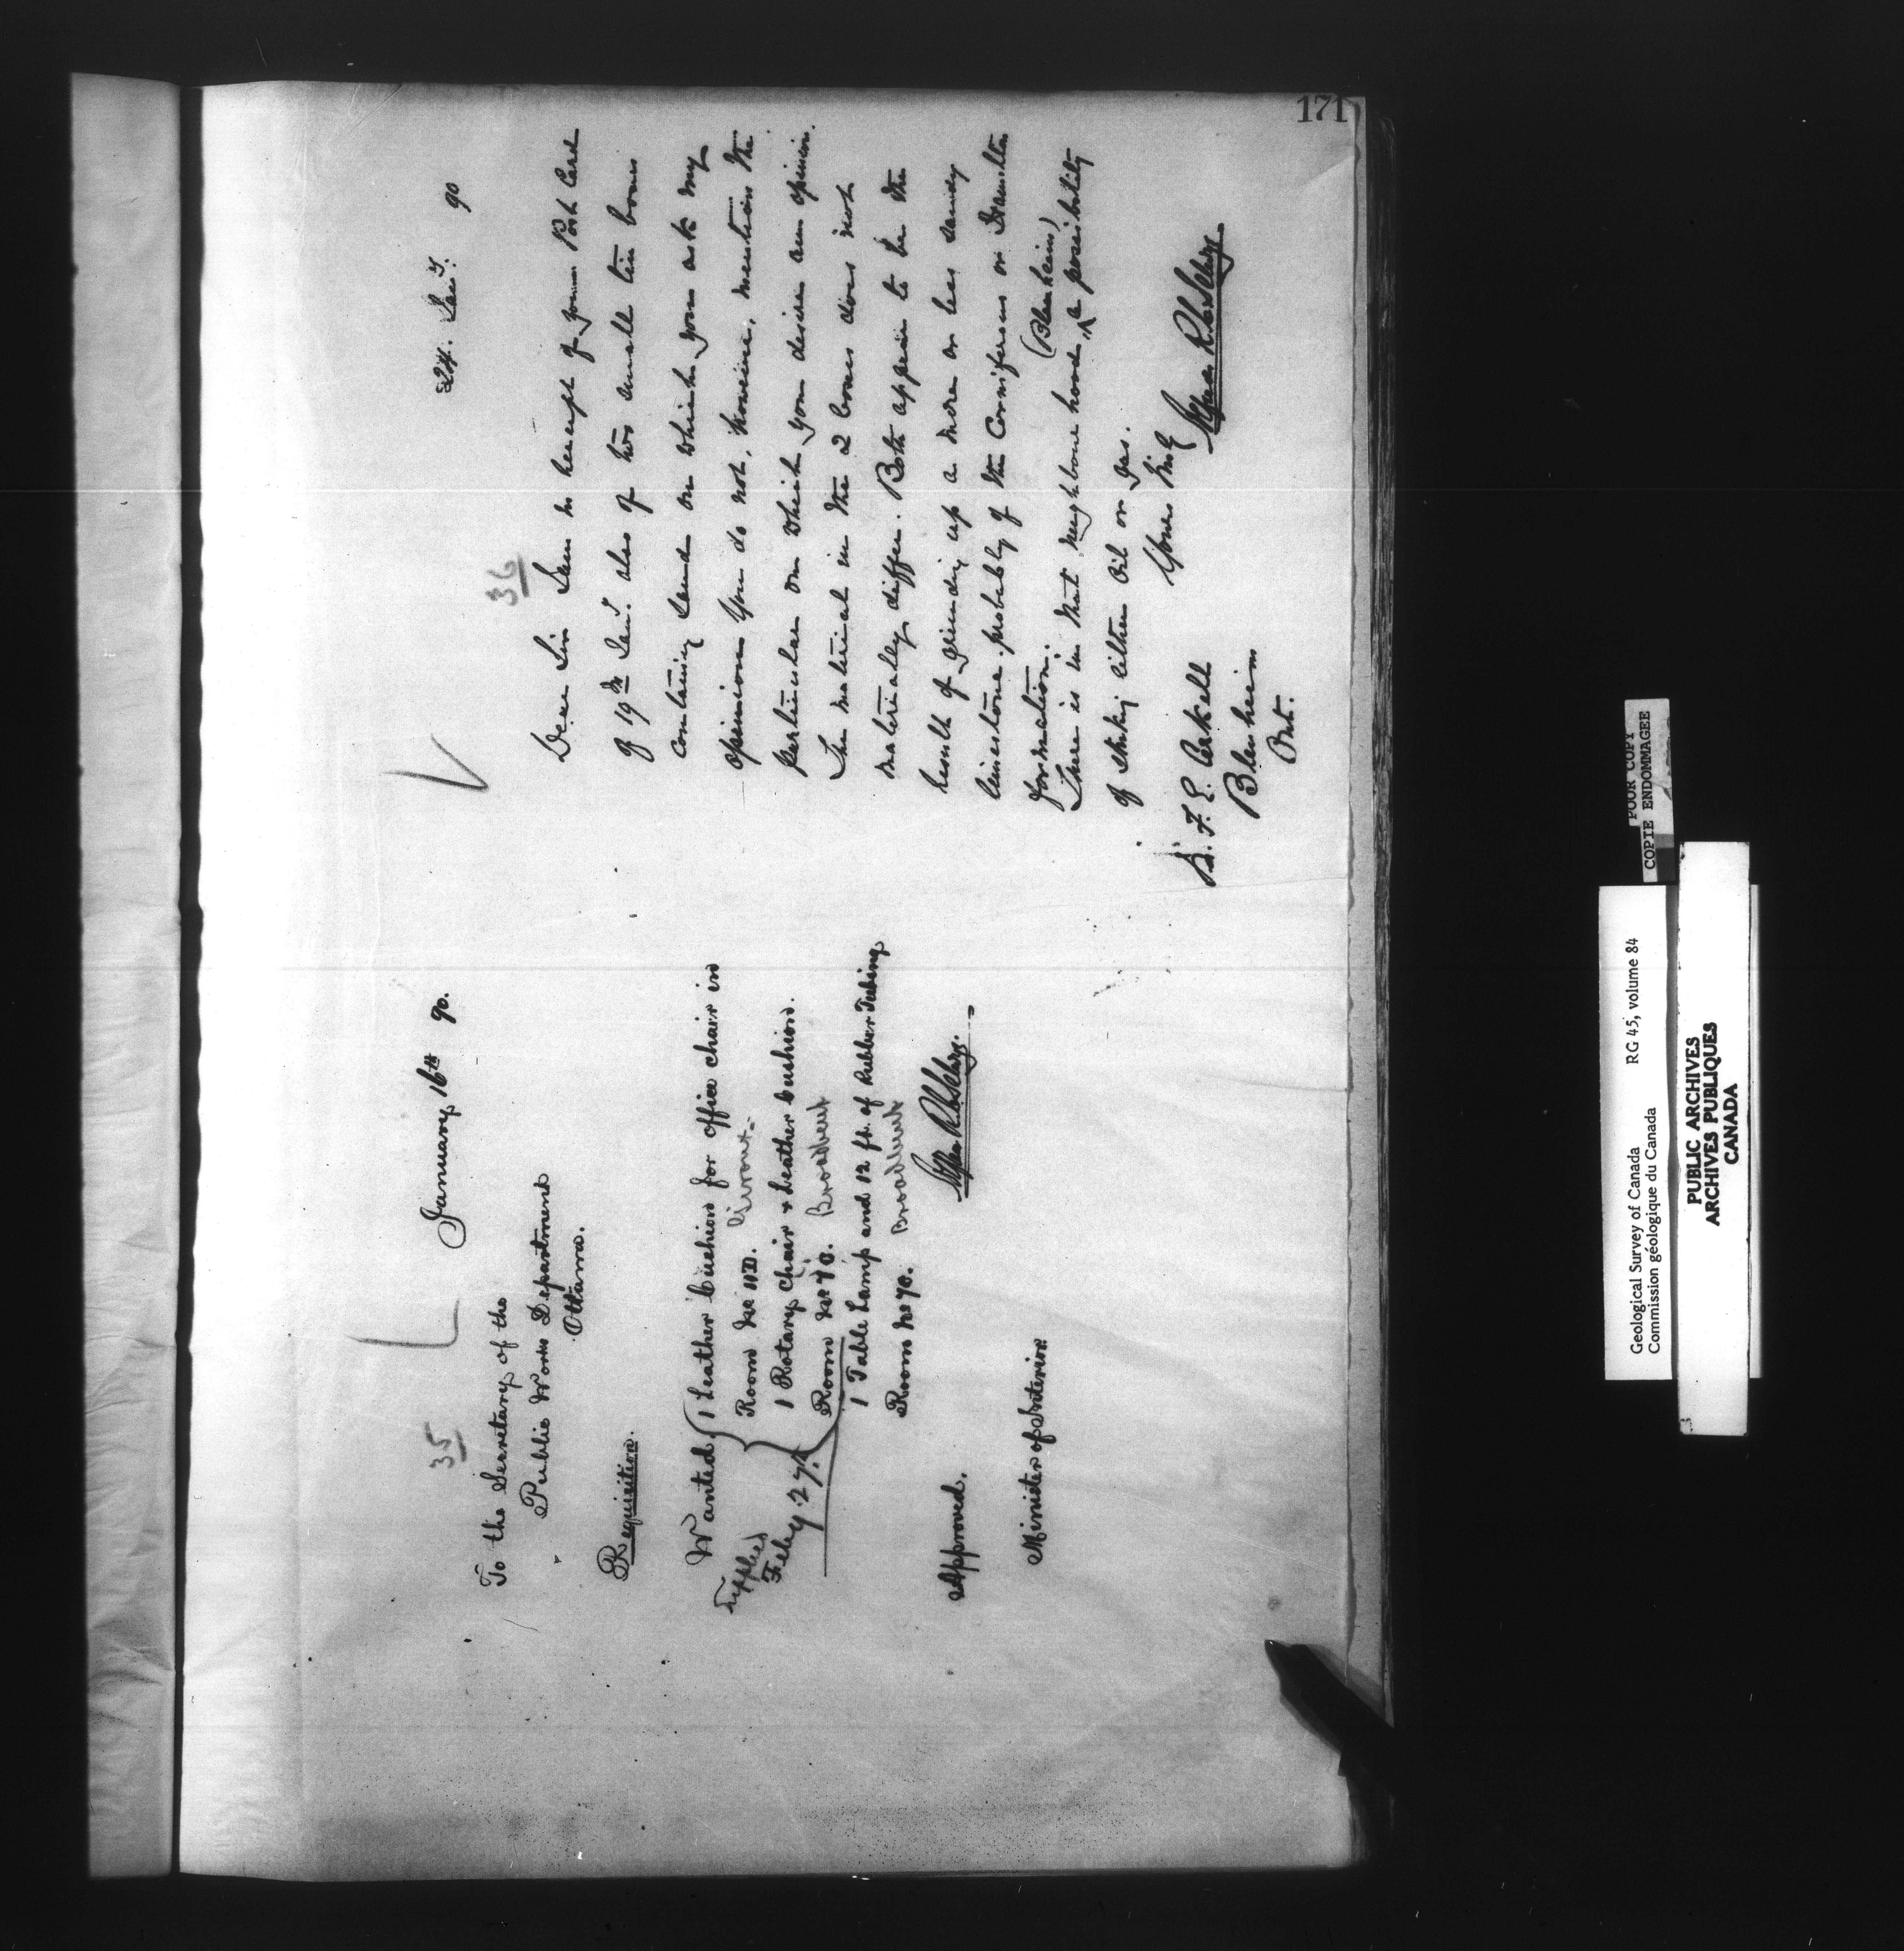 171
35
January 16th 90.
To the Secretary of the
Public Works Department
Ottawa.
Requisition.
Wanted 1 Leather Cushion for office chair in
Room No 11D. Giroux
1 Rotary Chair & Leather Cushion.
Room No 70. Broadbent
1 Table Lamp and 12 ft. of Rubber Tubing
Room No 70. Broadbent
Supplied
Feby 27th
Alfred R. C. Selwyn.
Approved.
Minister of Interior
24. Jany. 90
36
Dear Sir I am in receipt of your Post Card
of 19th Jany. also of two small tin boxes
containing sand on which you ask my
opinion You do not, however, mention the
particular on which you desire an opinion.
The material in the 2 boxes does not
materially differ. Both appear to be the
result of grinding up a more or less sandy
limestone, probably of the Corniferous or Hamilton
formation.
(Blenheim)
There is in that neighbourhood ^ a possibility
of striking either oil or gas.
Yours truly
Alfred R. C. Selwyn
B. F. E.
Blenheim
Ont.
POOR COPY
COPIE ENDOMMAGEE
Geological Survey of Canada RG 45, volume 84
Commission géologique du Canada
PUBLIC ARCHIVES
ARCHIVES PUBLIQUES
CANADA
3